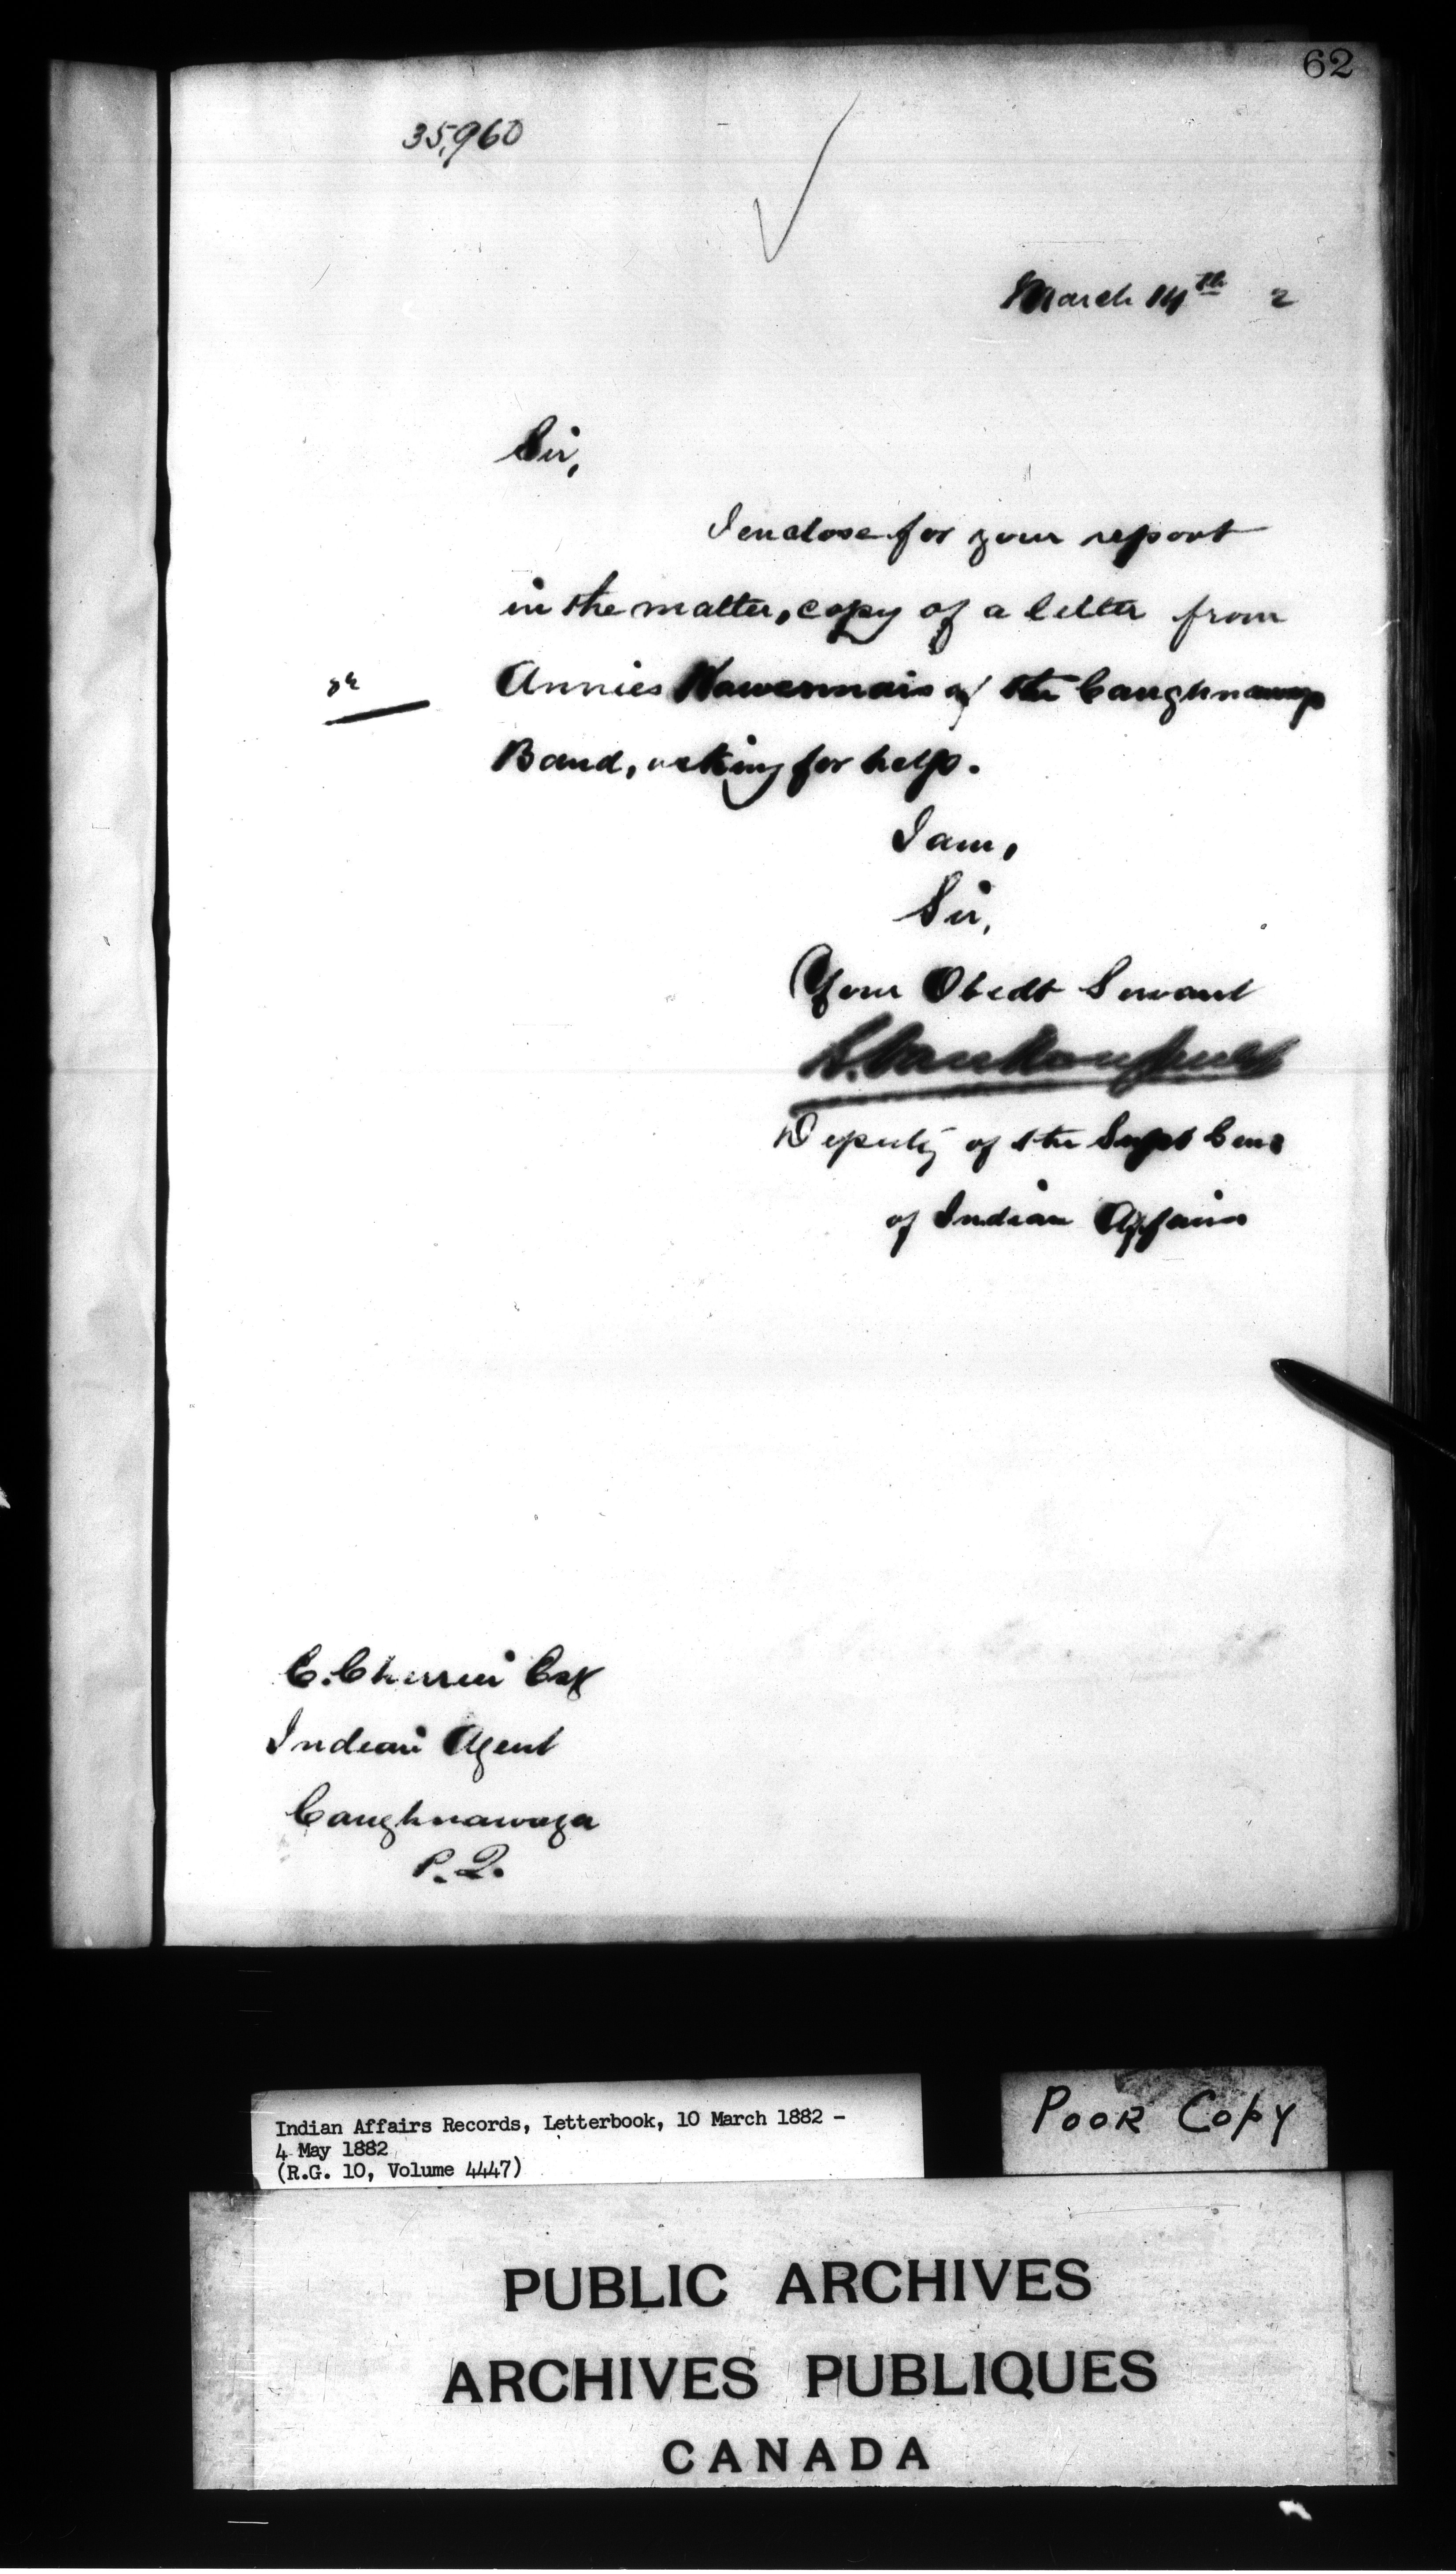 62
35,960
March 14th 2
Sir,
I enclose for your report
in the matter, copy of a letter from
Annies of the Caughnawaga
Band, asking for help.
I am,
Sir,
Your Obedt Servant
L. Vankoughnet
Deputy of the Supt Genl
of Indian Affairs
E. Cherrier Esq
Indian Agent
Caughnawaga
P. Q.
Indian Affairs Records, Letterbook, 10 March 1882 -
4 May 1882
(R.G. 10, Volume 4447)
POOR COPY
PUBLIC ARCHIVES
ARCHIVES PUBLIQUES
CANADA